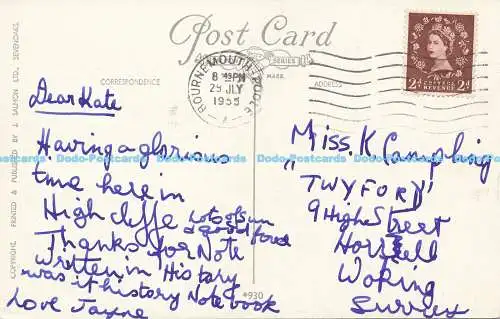 Post Card
CORRESPONDENCE
ADDRESS
SERIES
BOURNEMOUTH-POOLE
29 JLY
1955
POSTAGE
REVENUE
2d 2d
Dear Kate
Having a glorious
time here in
Highcliffe Lots of sun
& good food
Thanks for Note
written in History
was it history Note book
Love Jayne
Miss K Campling
"TWYFORD"
9 High Street
Horsell
Woking
Surrey
COPYRIGHT. PRINTED & PUBLISHED BY J. SALMON LTD., SEVENOAKS.
Dodo-Postcards Dodo-Postcards Dodo-Postcards Dodo-Postcards